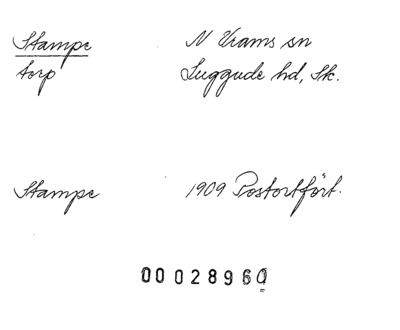 Stampe N Vrams sn
torp Luggude hd, Sk.
Stampe 1909 Postortfört.
00028960